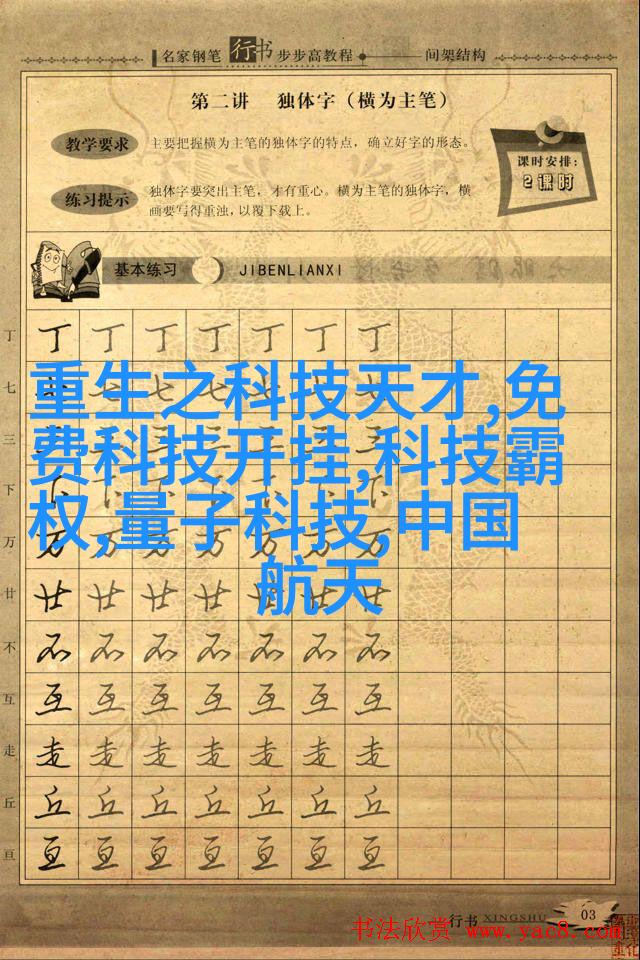 名家钢笔 行书 步步高教程 间架结构
第二讲 独体字（横为主笔）
教学要求 主要把握横为主笔的独体字的特点，确立好字的形态。
课时安排：
2课时
练习提示 独体字要突出主笔，才有重心。横为主笔的独体字，横
画要写得重浊，以覆下载上。
基本练习 JIBENLIANXI
丁 丁 丁 丁 丁 丁 丁 丁
重生之科技天才,免
七 七 七 七 七 七 七
费科技开挂,科技霸
三 三 三 三 三
下 下 下 下 下
权,量子科技,中国
万 万 万 万 万 万 万 万
航天
廿 廿 廿 廿 廿 廿 廿 廿
不 不 不 不 不 不 不 不
互 互 互 互 互 互 互 互
走 走 走 走 走 走 走 走
丘 丘 丘 丘 丘 丘 丘 丘
亘 亘 亘 亘 亘 亘 亘 亘
行书 XINGSHU 03
书法欣赏 www.yac8.com